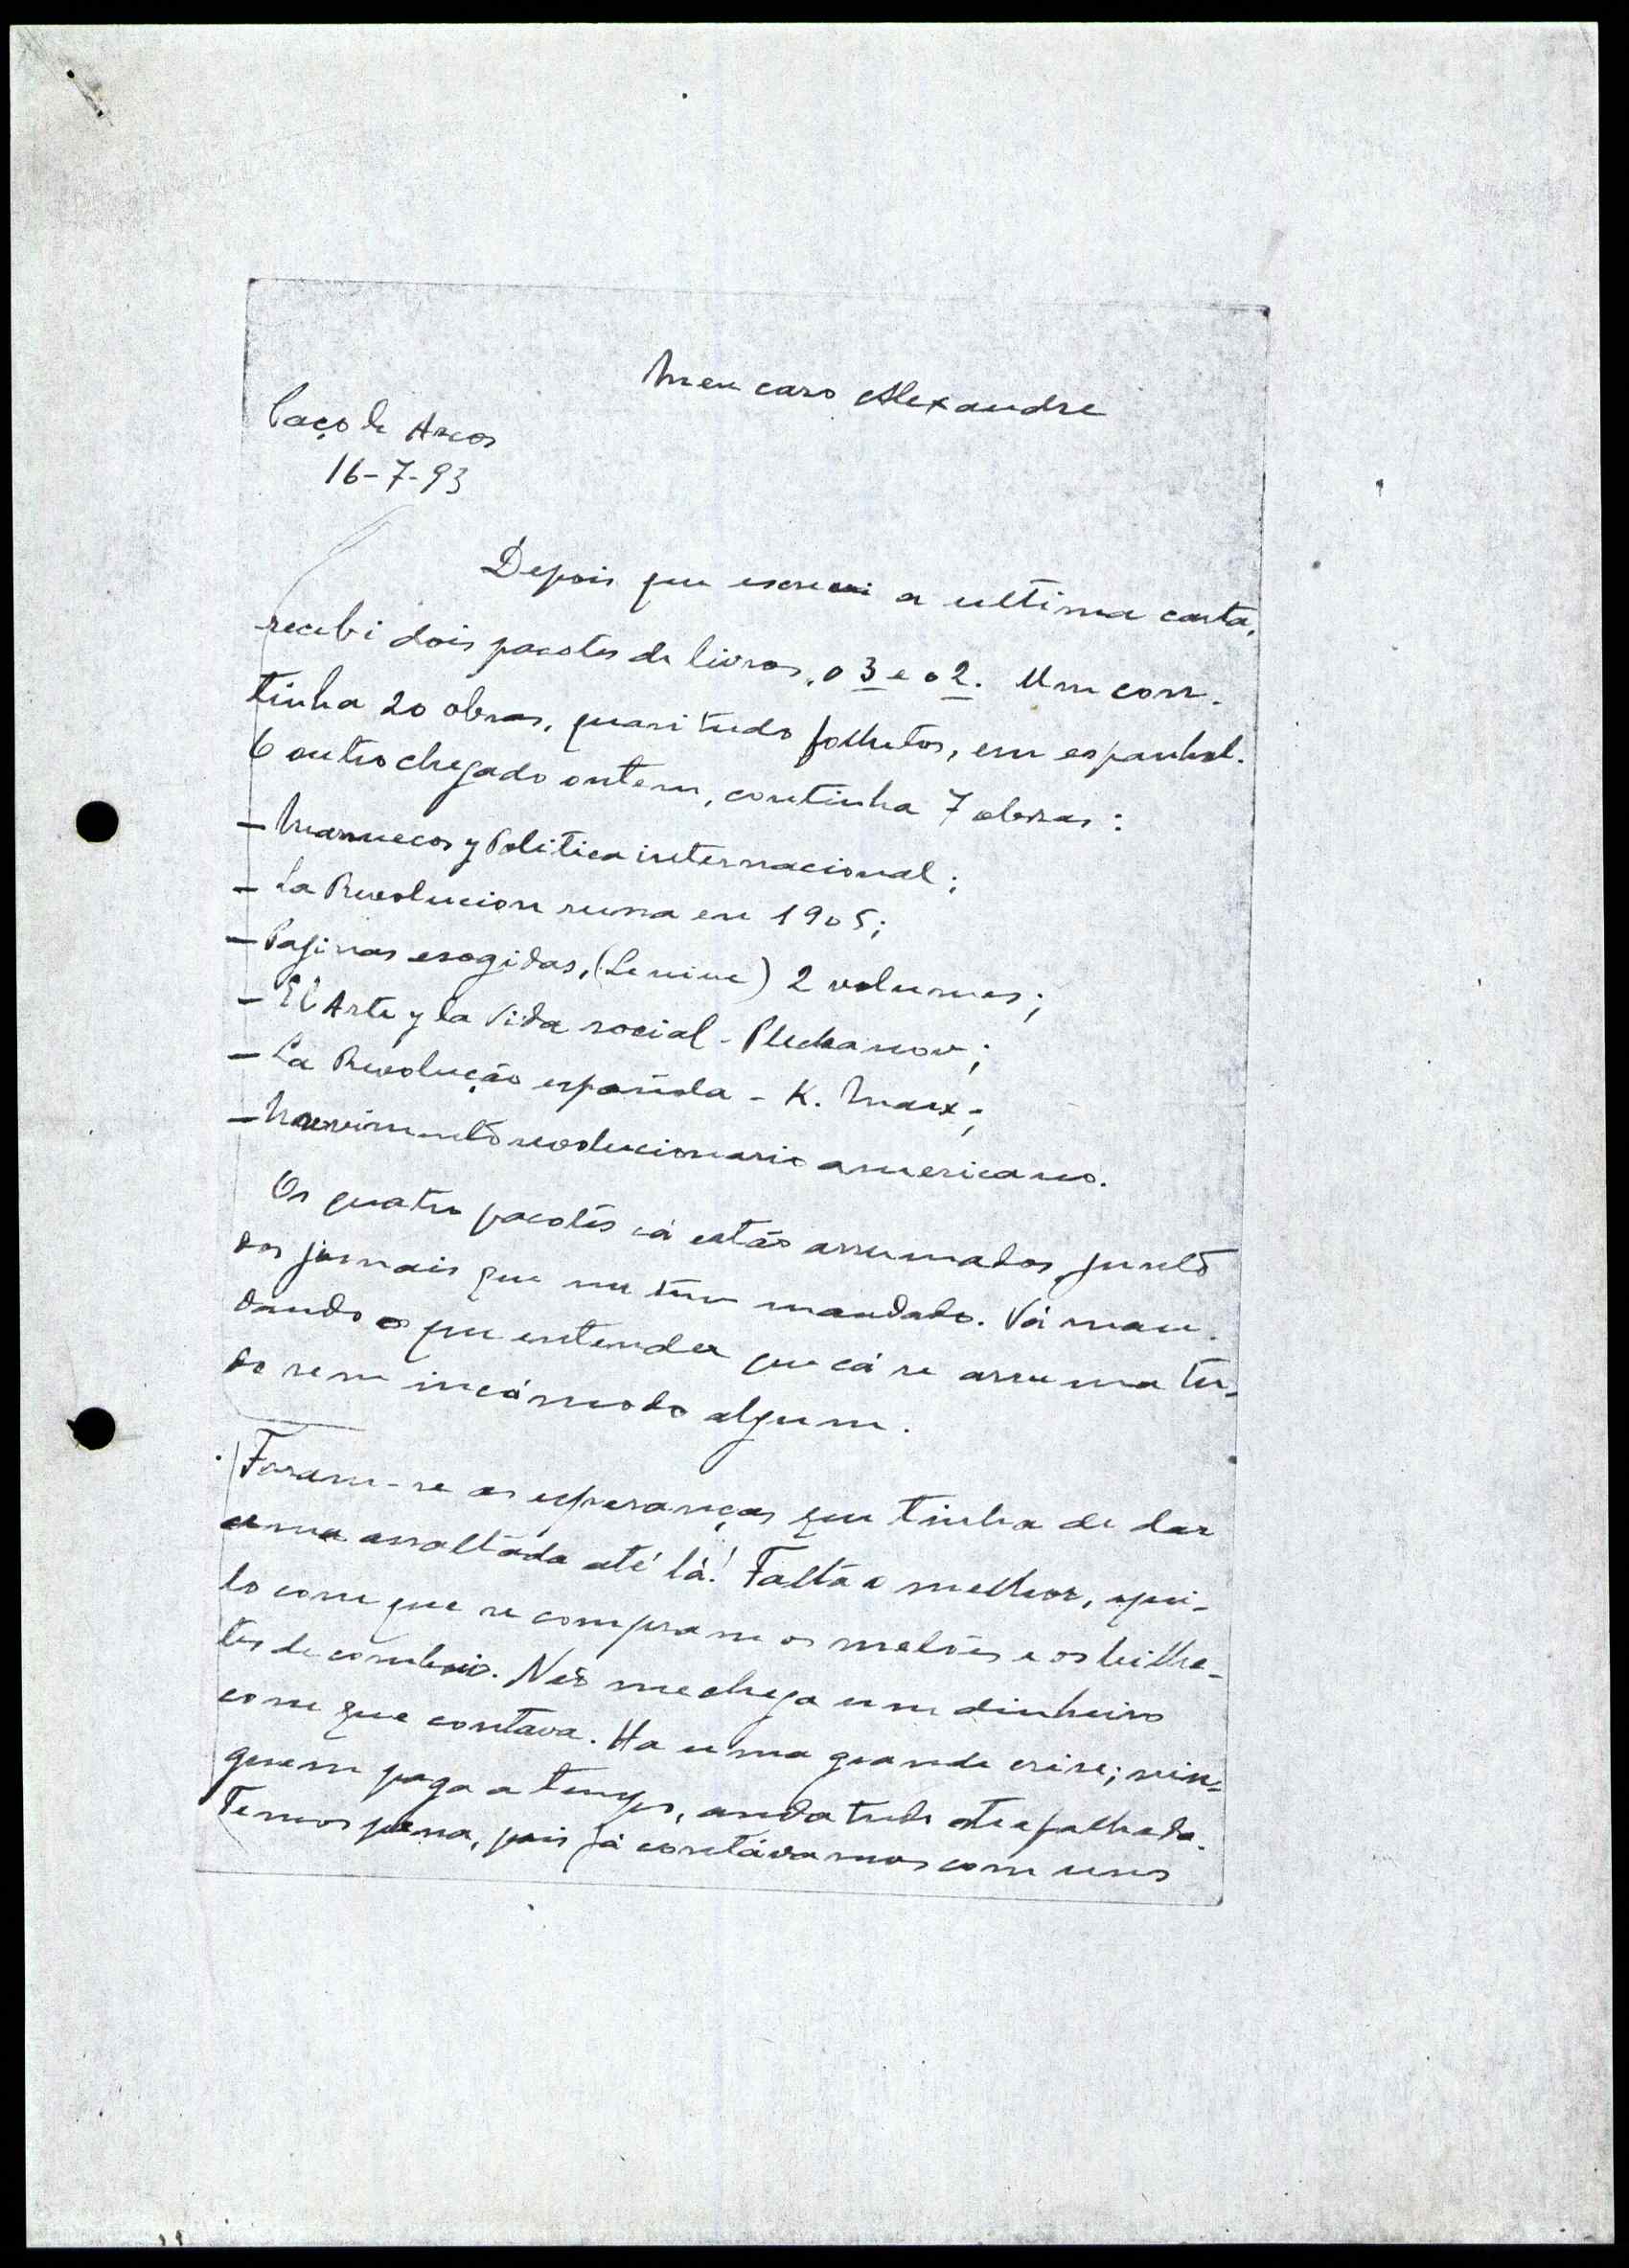 Meu caro Alexandre
Paço de Arcos
16-7-93
Depois que escrevi a ultima carta,
recebi dois pacotes de livros, o 3 e o 2. Um con-
tinha 20 obras, quasi tudo folhetos, em espanhol.
O outro chegado ontem, continha 7 obras:
- Marruecos y Politica internacional;
- La Revolucion russa en 1905;
- Paginas esogidas, (Lenine) 2 volumes;
- El Arte y la Vida social - Plechanov;
- La Revolução española - K. Marx;
- Movimento revolucionario americano.
Os quatro pacotes cá estão arrumados junto
dos jornais que me tem mandado. Vá man-
dando o que entender que cá se arruma tu-
do sem incómodo algum.
Foram-se as esperanças que tinha de dar
uma assaltada até lá! Falta o melhor, aqui-
lo com que se compram os melões e os bilhe-
tes de comboio. Não me chega um dinheiro
com que contava. Ha uma grande crise; nin-
guem paga a tempo, anda tudo atrapalhado.
Temos pena, pois já contávamos com uns